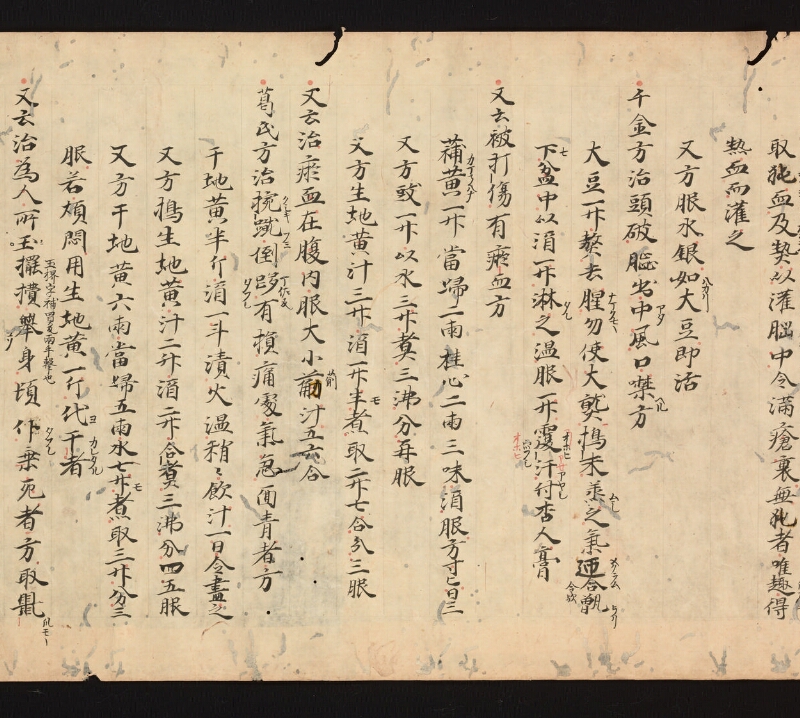 取㹠血及熱以灌䐉中令滿瘡裏無㹠者唯趣得
熱血而灌之
又方服水銀如大豆即活
千金方治頭破腦出中風口噤方
大豆一升熬去腥勿使大熟擣末蒸之氣遍合甑
下盆中以酒一升淋之温服一升覆汗付杏人膏
又云被打傷有瘀血方
蒲黄一升當歸二兩桂心二兩三味酒服方寸匕日三
又方豉一升以水三升煑三沸分再服
又方生地黄汁三升酒一升半煮取二升七合分三服
又云治瘀血在腹内服大小葪汁五六合
葛氏方治捥蹴倒踒有損痛處氣急面青者方
干地黄半斤酒一斗漬火温稍〻飲汁一日令盡之
又方擣生地黄汁二升酒二升合煑三沸分四五服
又方干地黄六兩當歸五兩水七升煮取三升分三
服若煩悶用生地黄一斤代干者
又云治為人所𢫦擺擯舉身頓仆垂死者方取鼠